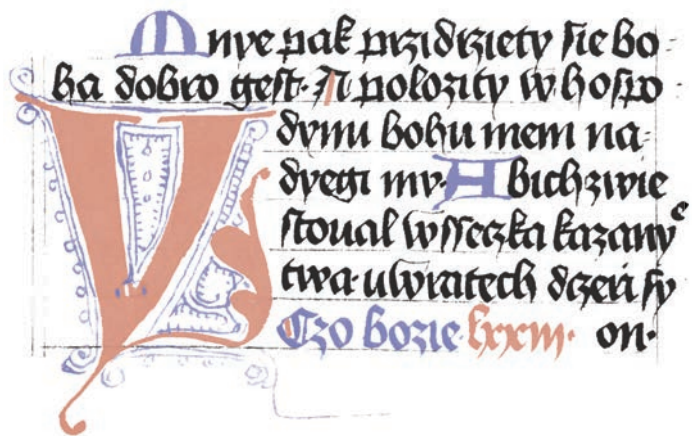 Mnye pak przidrziety sie bo-
ha dobro gest· A polozity w hospo-
dynu bohu mem na-
dyegi my· A bich zwie
stoual wsseczka kazanye
twa· u wratech dczeri sy
VSCzo bozie lxxiii· on·